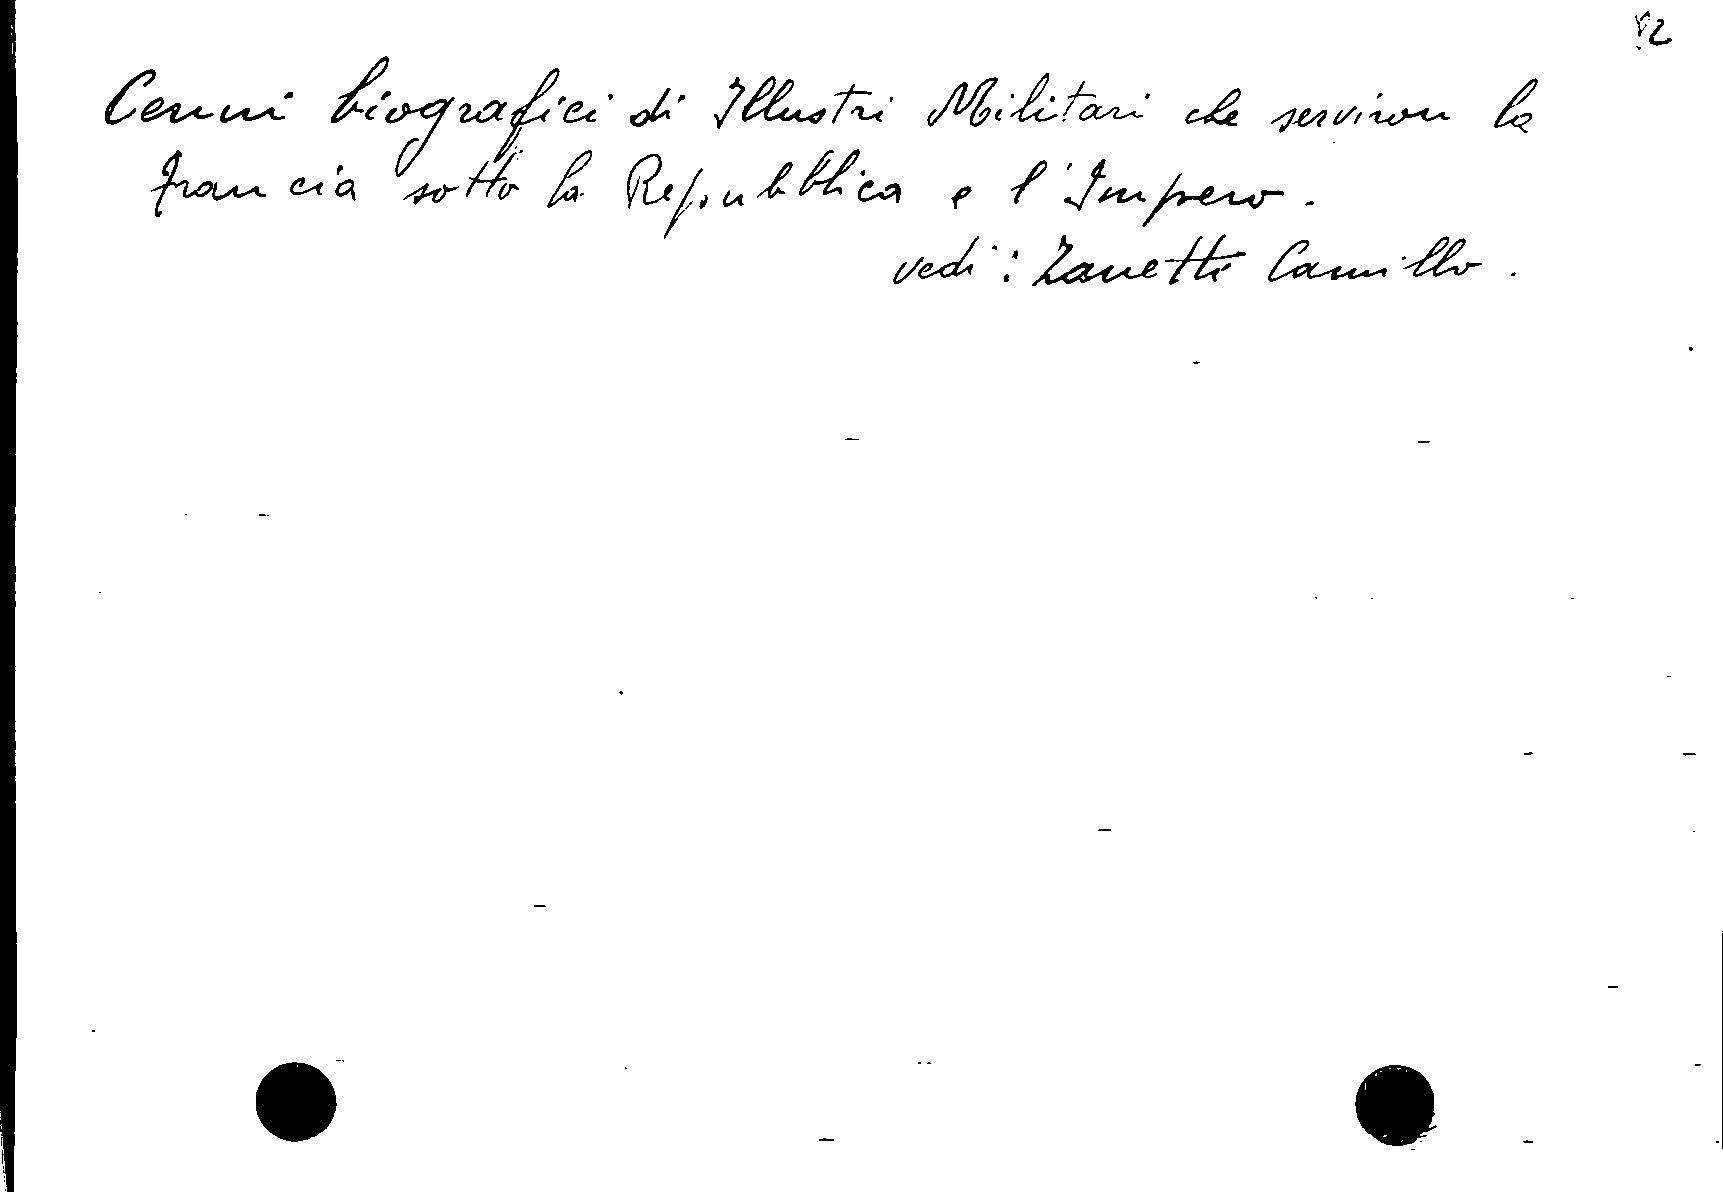 Cenni biografici di Illustri Militari che serviron la
Francia sotto la Repubblica e l'Impero.
vedi: Zanetti Camillo.